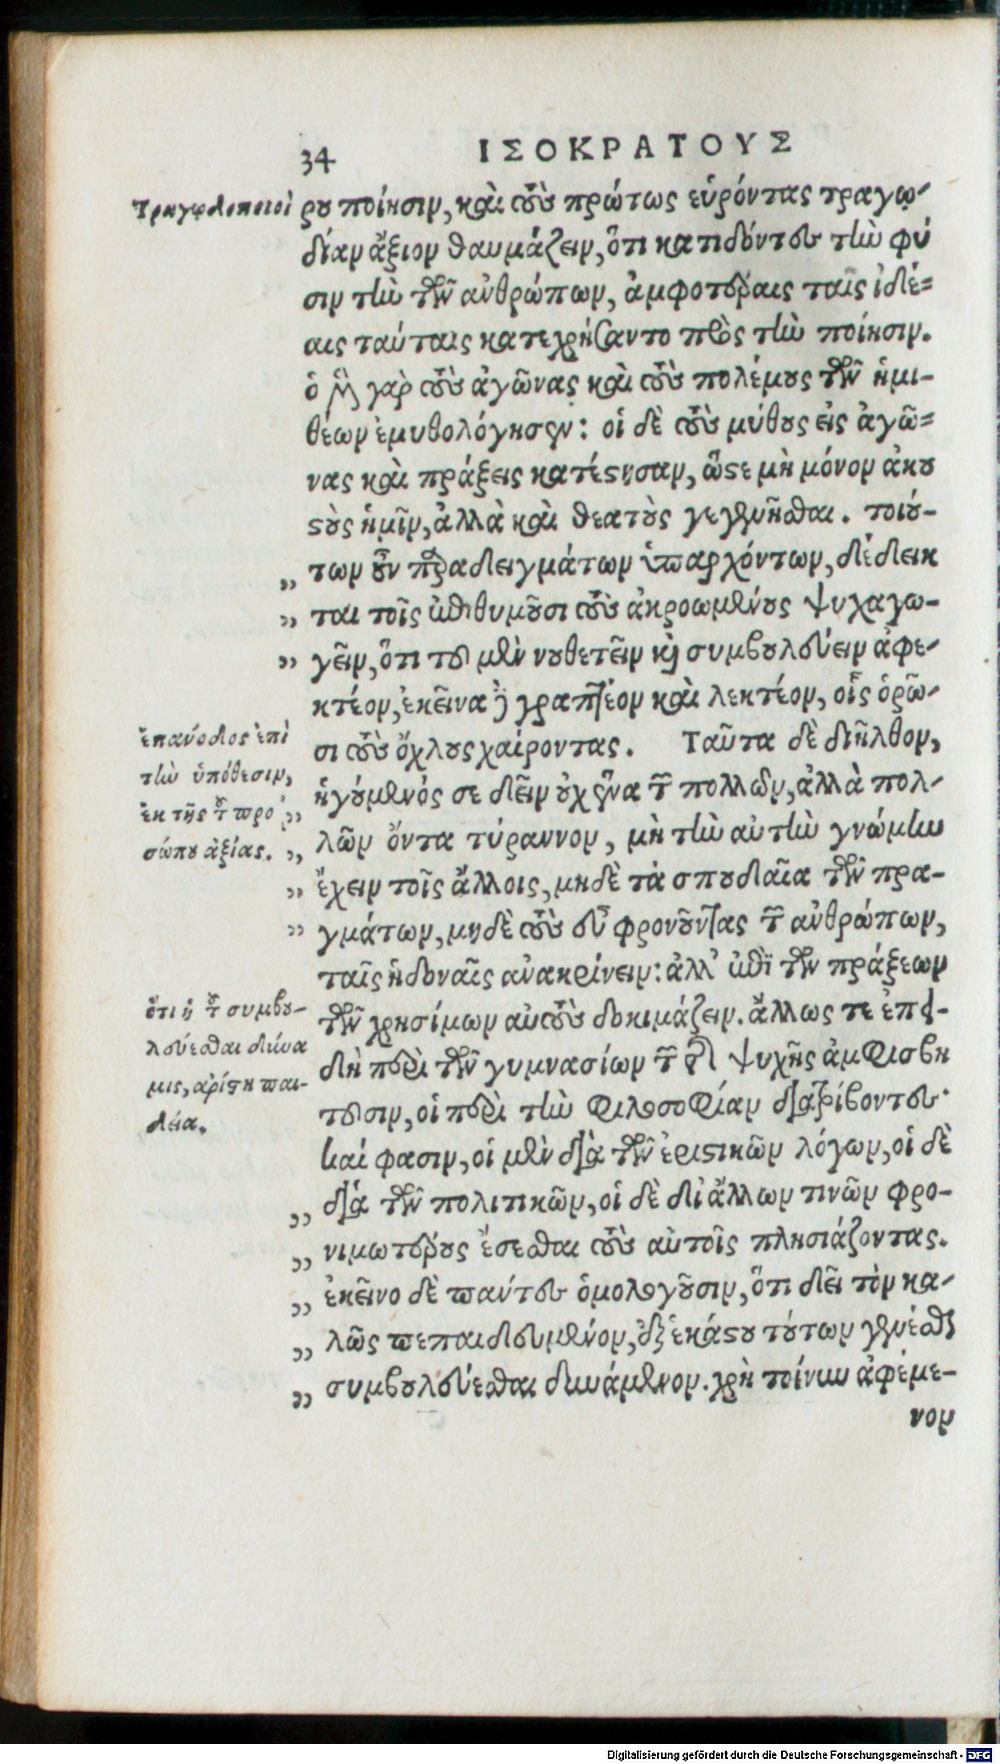 34 ΙΣΟΚΡΑΤΟΥΣ
Τραγῳδοποιοὶ
ρου ποίησιν, καὶ τοὺς πρώτως εὑρόντας τραγῳ-
δίαν ἄξιον θαυμάζειν, ὅτι κατιδόντες τὴν φύ
σιν τὴν τῶν ἀνθρώπων, ἀμφοτέραις ταῖς ἰδέ=
αις ταύταις κατεχρήσαντο πρὸς τὴν ποίησιν.
ὁ μὲν γὰρ τοὺς ἀγῶνας καὶ τοὺς πολέμους τῶν ἡμι-
θέων ἐμυθολόγησεν: οἱ δὲ τοὺς μύθους εἰς ἀγῶ=
νας καὶ πράξεις κατέστησαν, ὥστε μὴ μόνον ἀκου
στοὺς ἡμῖν, ἀλλὰ καὶ θεατοὺς γεγενῆσθαι. τοιού-
„ των οὖν παραδειγμάτων ὑπαρχόντων, δέδεικ
„ ται τοῖς ἐπιθυμοῦσι τοὺς ἀκροωμένους ψυχαγω-
„ γεῖν, ὅτι τοῦ μὲν νουθετεῖν καὶ συμβουλεύειν ἀφε-
κτέον, ἐκεῖνα δὲ γραπτέον καὶ λεκτέον, οἷς ὁρῶ-
σι τοὺς ὄχλους χαίροντας. Ταῦτα δὲ διῆλθον,
ἐπάνοδος ἐπὶ
τὴν ὑπόθεσιν,
ἐκ τῆς τοῦ προ
σώπου ἀξίας.
ἡγούμενός σε δεῖν οὐχ ἕνα τῶν πολλῶν, ἀλλὰ πολ-
„ λῶν ὄντα τύραννον, μὴ τὴν αὐτὴν γνώμην
„ ἔχειν τοῖς ἄλλοις, μηδὲ τὰ σπουδαῖα τῶν πρα-
„ γμάτων, μηδὲ τοὺς εὖ φρονοῦντας τῶν ἀνθρώπων,
ταῖς ἡδοναῖς ἀνακρίνειν: ἀλλ' ἐπὶ τῶν πράξεων
ὅτι ἡ τοῦ συμβου-
λεύεσθαι δύνα
μις, ἀρίστη παι-
δεία.
τῶν χρησίμων αὐτοὺς δοκιμάζειν. ἄλλως τε ἐπει-
δὴ περὶ τῶν γυμνασίων τῶν τῆς ψυχῆς ἀμφισβη
τοῦσιν, οἱ περὶ τὴν φιλοσοφίαν διατρίβοντες·
καί φασιν, οἱ μὲν διὰ τῶν ἐριστικῶν λόγων, οἱ δὲ
„ διὰ τῶν πολιτικῶν, οἱ δὲ δι' ἄλλων τινῶν φρο-
„ νιμωτέρους ἔσεσθαι τοὺς αὐτοῖς πλησιάζοντας.
„ ἐκεῖνο δὲ πάντες ὁμολογοῦσιν, ὅτι δεῖ τὸν κα-
„ λῶς πεπαιδευμένον, ἐξ ἑκάστου τούτων γενέσθαι
„ συμβουλεύεσθαι δυνάμενον. χρὴ τοίνυν ἀφέμε-
νον
Digitalisierung gefördert durch die Deutsche Forschungsgemeinschaft - DFG